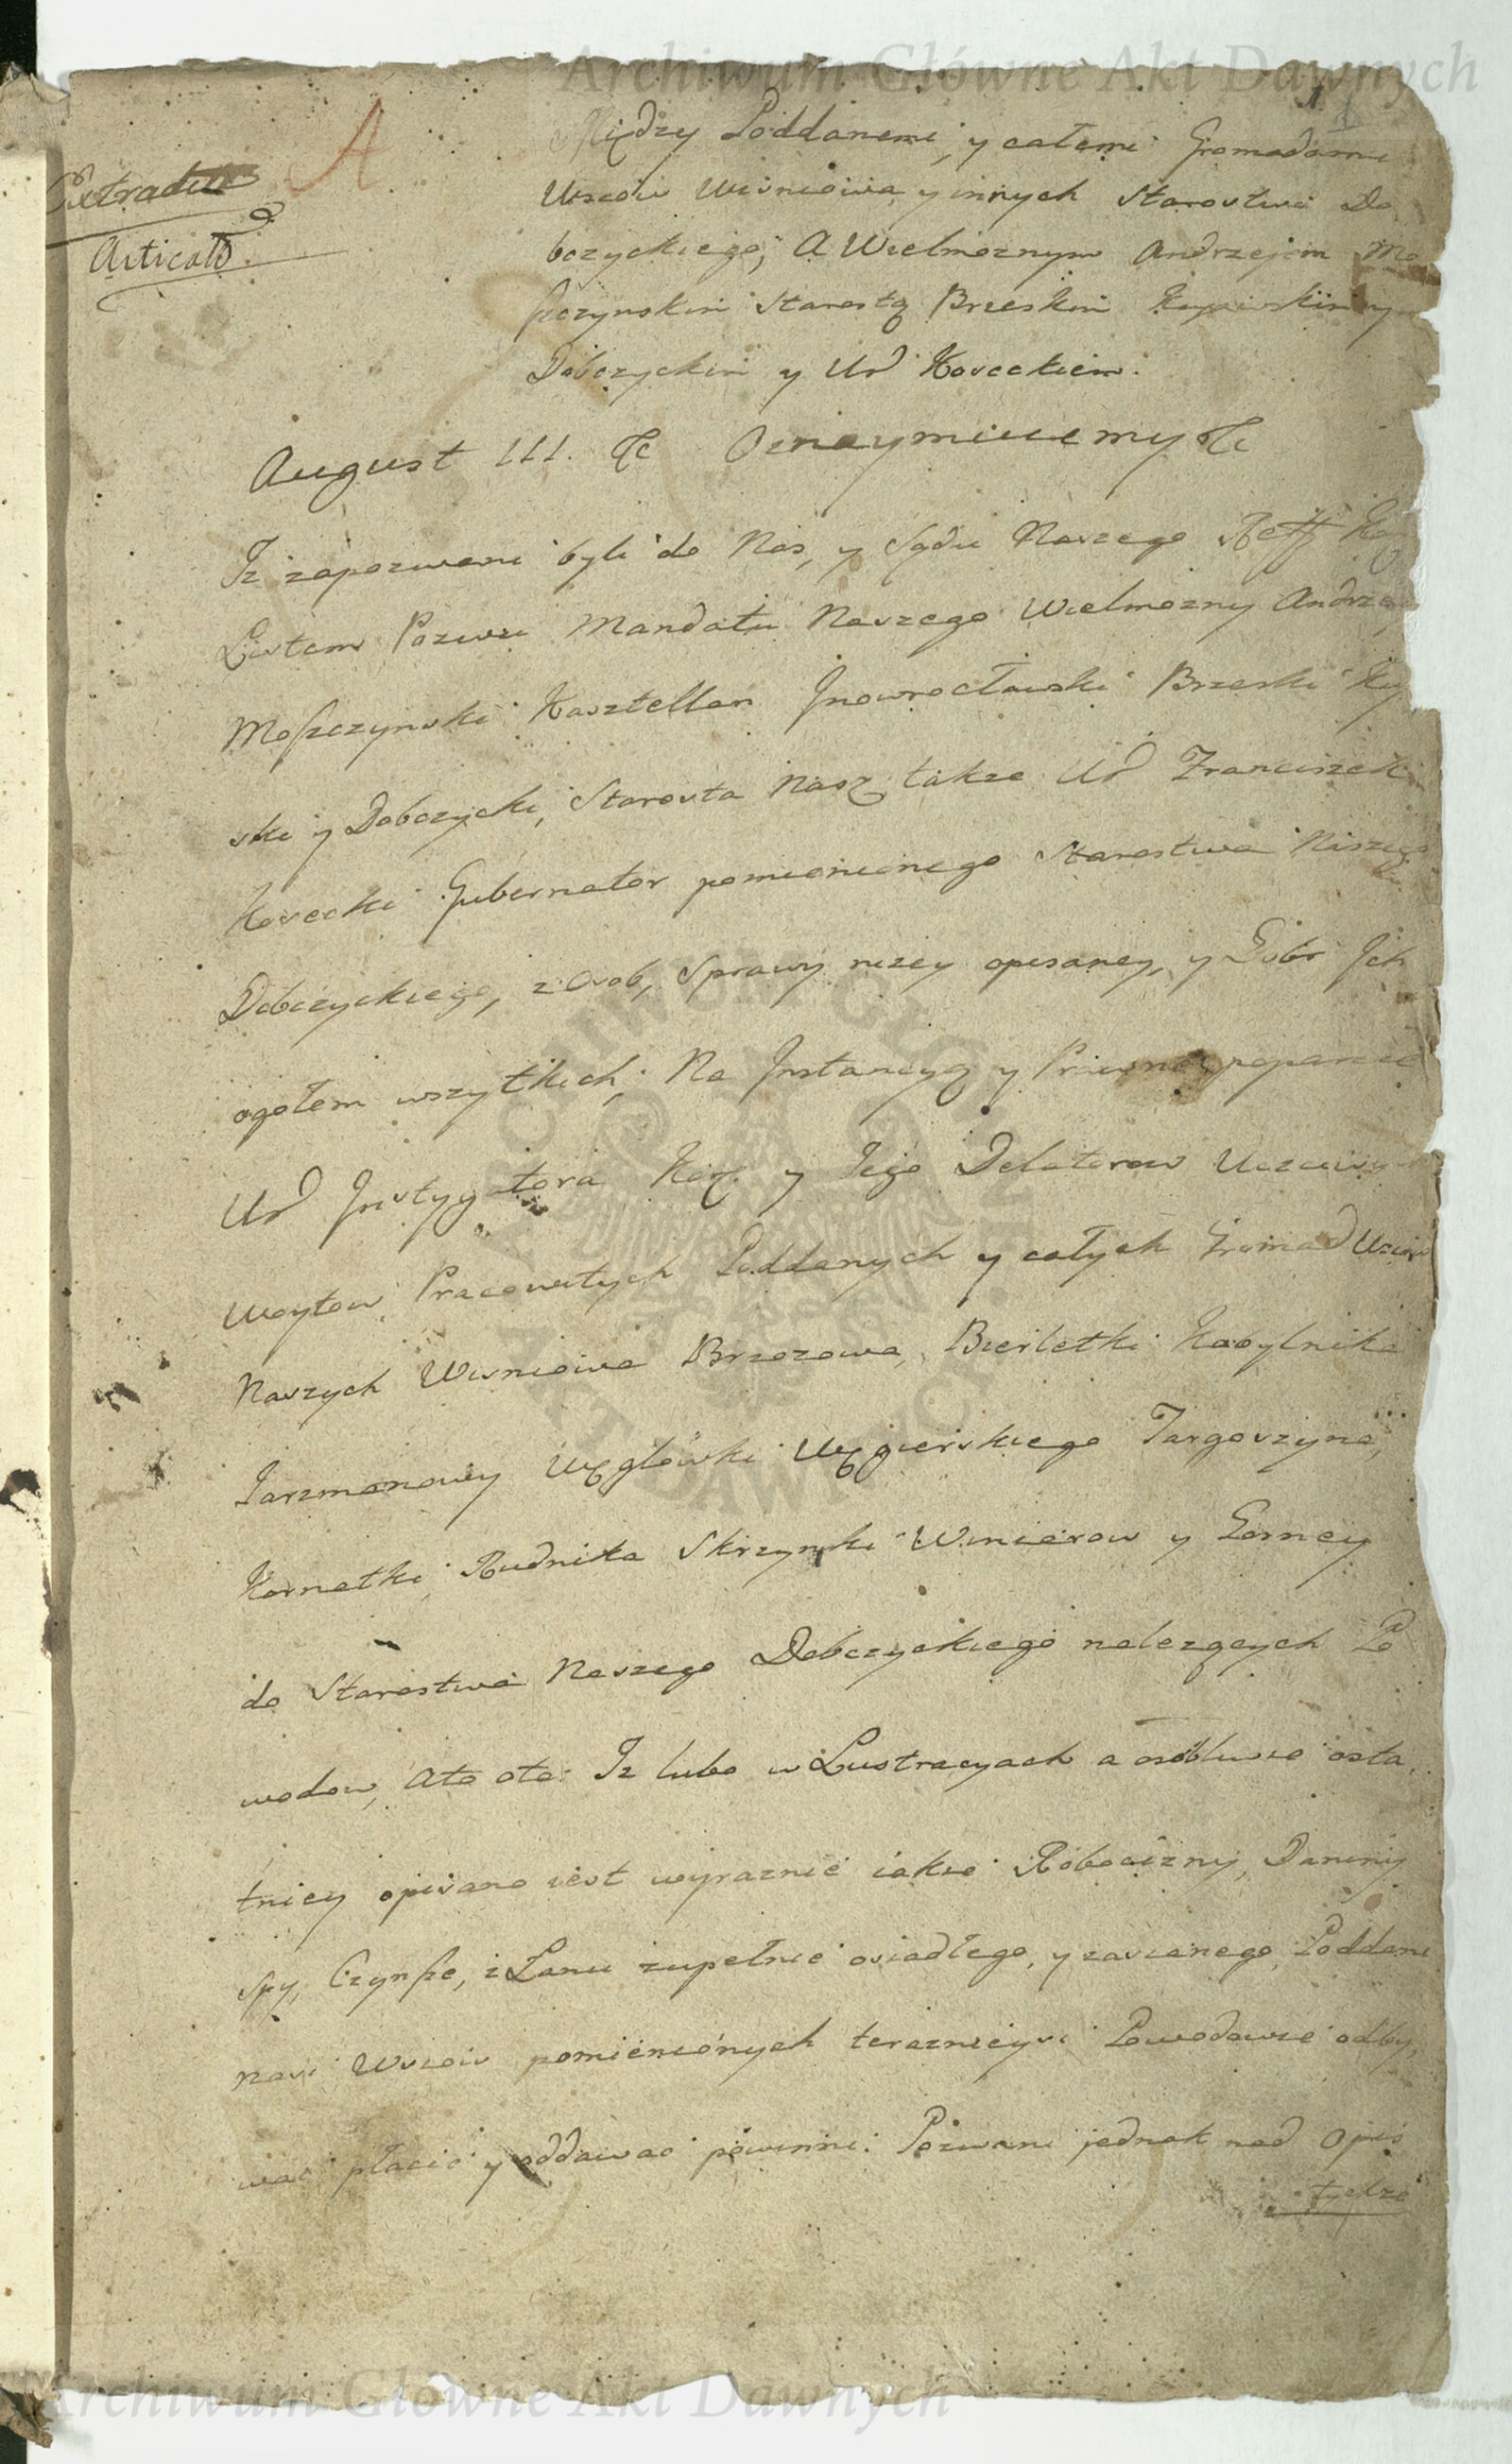 Archiwum Główne Akt Dawnych
A
Między Poddanemi, y całemi Gromadami
Extradita
Wsiow Wisniowa y innych Starostwa Do
bczyckiego, A Wielmoznym Andrzejem Mo
Articato
szczynskim Starostą Brzeskim Kujawskim y
Dobczyckim y Ur Koseckiem.
August III. &c Oznaymuiemy &c
Iz zapozwani byli do Nas, y Sądu Naszego Reff
Listem Pozwu Mandatu Naszego Wielmozny Andrzey
Moszczynski Kasztellan Jnowrocławski Brzeski Kuj
ski y Dobczycki, Starosta Nasz, takze Ur Franciszek
Kosecki Gubernator pomienionego Starostwa Naszego
Dobczyckiego, z Osob, Sprawy nizey opisaney, y Dobr Jch
ogołem wszytkich, Na Jnstancyą y Prawne popanie
Ur Jnstygatora Kor. y Jego Delatorow Uczciwych
Woytow Pracowitych Poddanych y całych Gromad Wsiow
Naszych Wisniowa Brzozowa, Bierletki Kobylnika
Jarzmanowy Węglowki Węgierskiego Targoszyna,
Kornatki Rudnika Skrzynki Winiarow y Gorney
do Starostwa Naszego Dobczyckiego nalezących Po
wodow, Ato oto: Iz lubo w Lustracyach a osobliwie osta
tniey opisano iest wyraznie iakie Robocizny, Daniny
spy, Czynsze, z Łanu zupełnie osiadłego, y zasianego Poddani
nasi Wsiow pomienionych teraznieysi Powodowie odby
wac płacic y oddawac powinni: Pozwani jednak nad Opis
tychze
Archiwum Główne Akt Dawnych